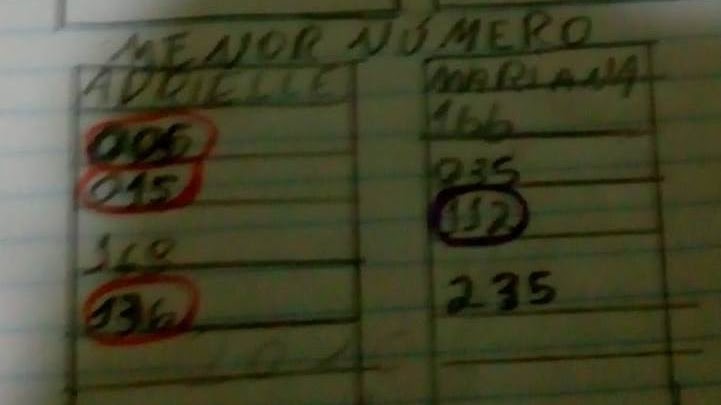 MENOR NÚMERO
ADDIELLE MARIANA
006 166
015 035
112
136 235